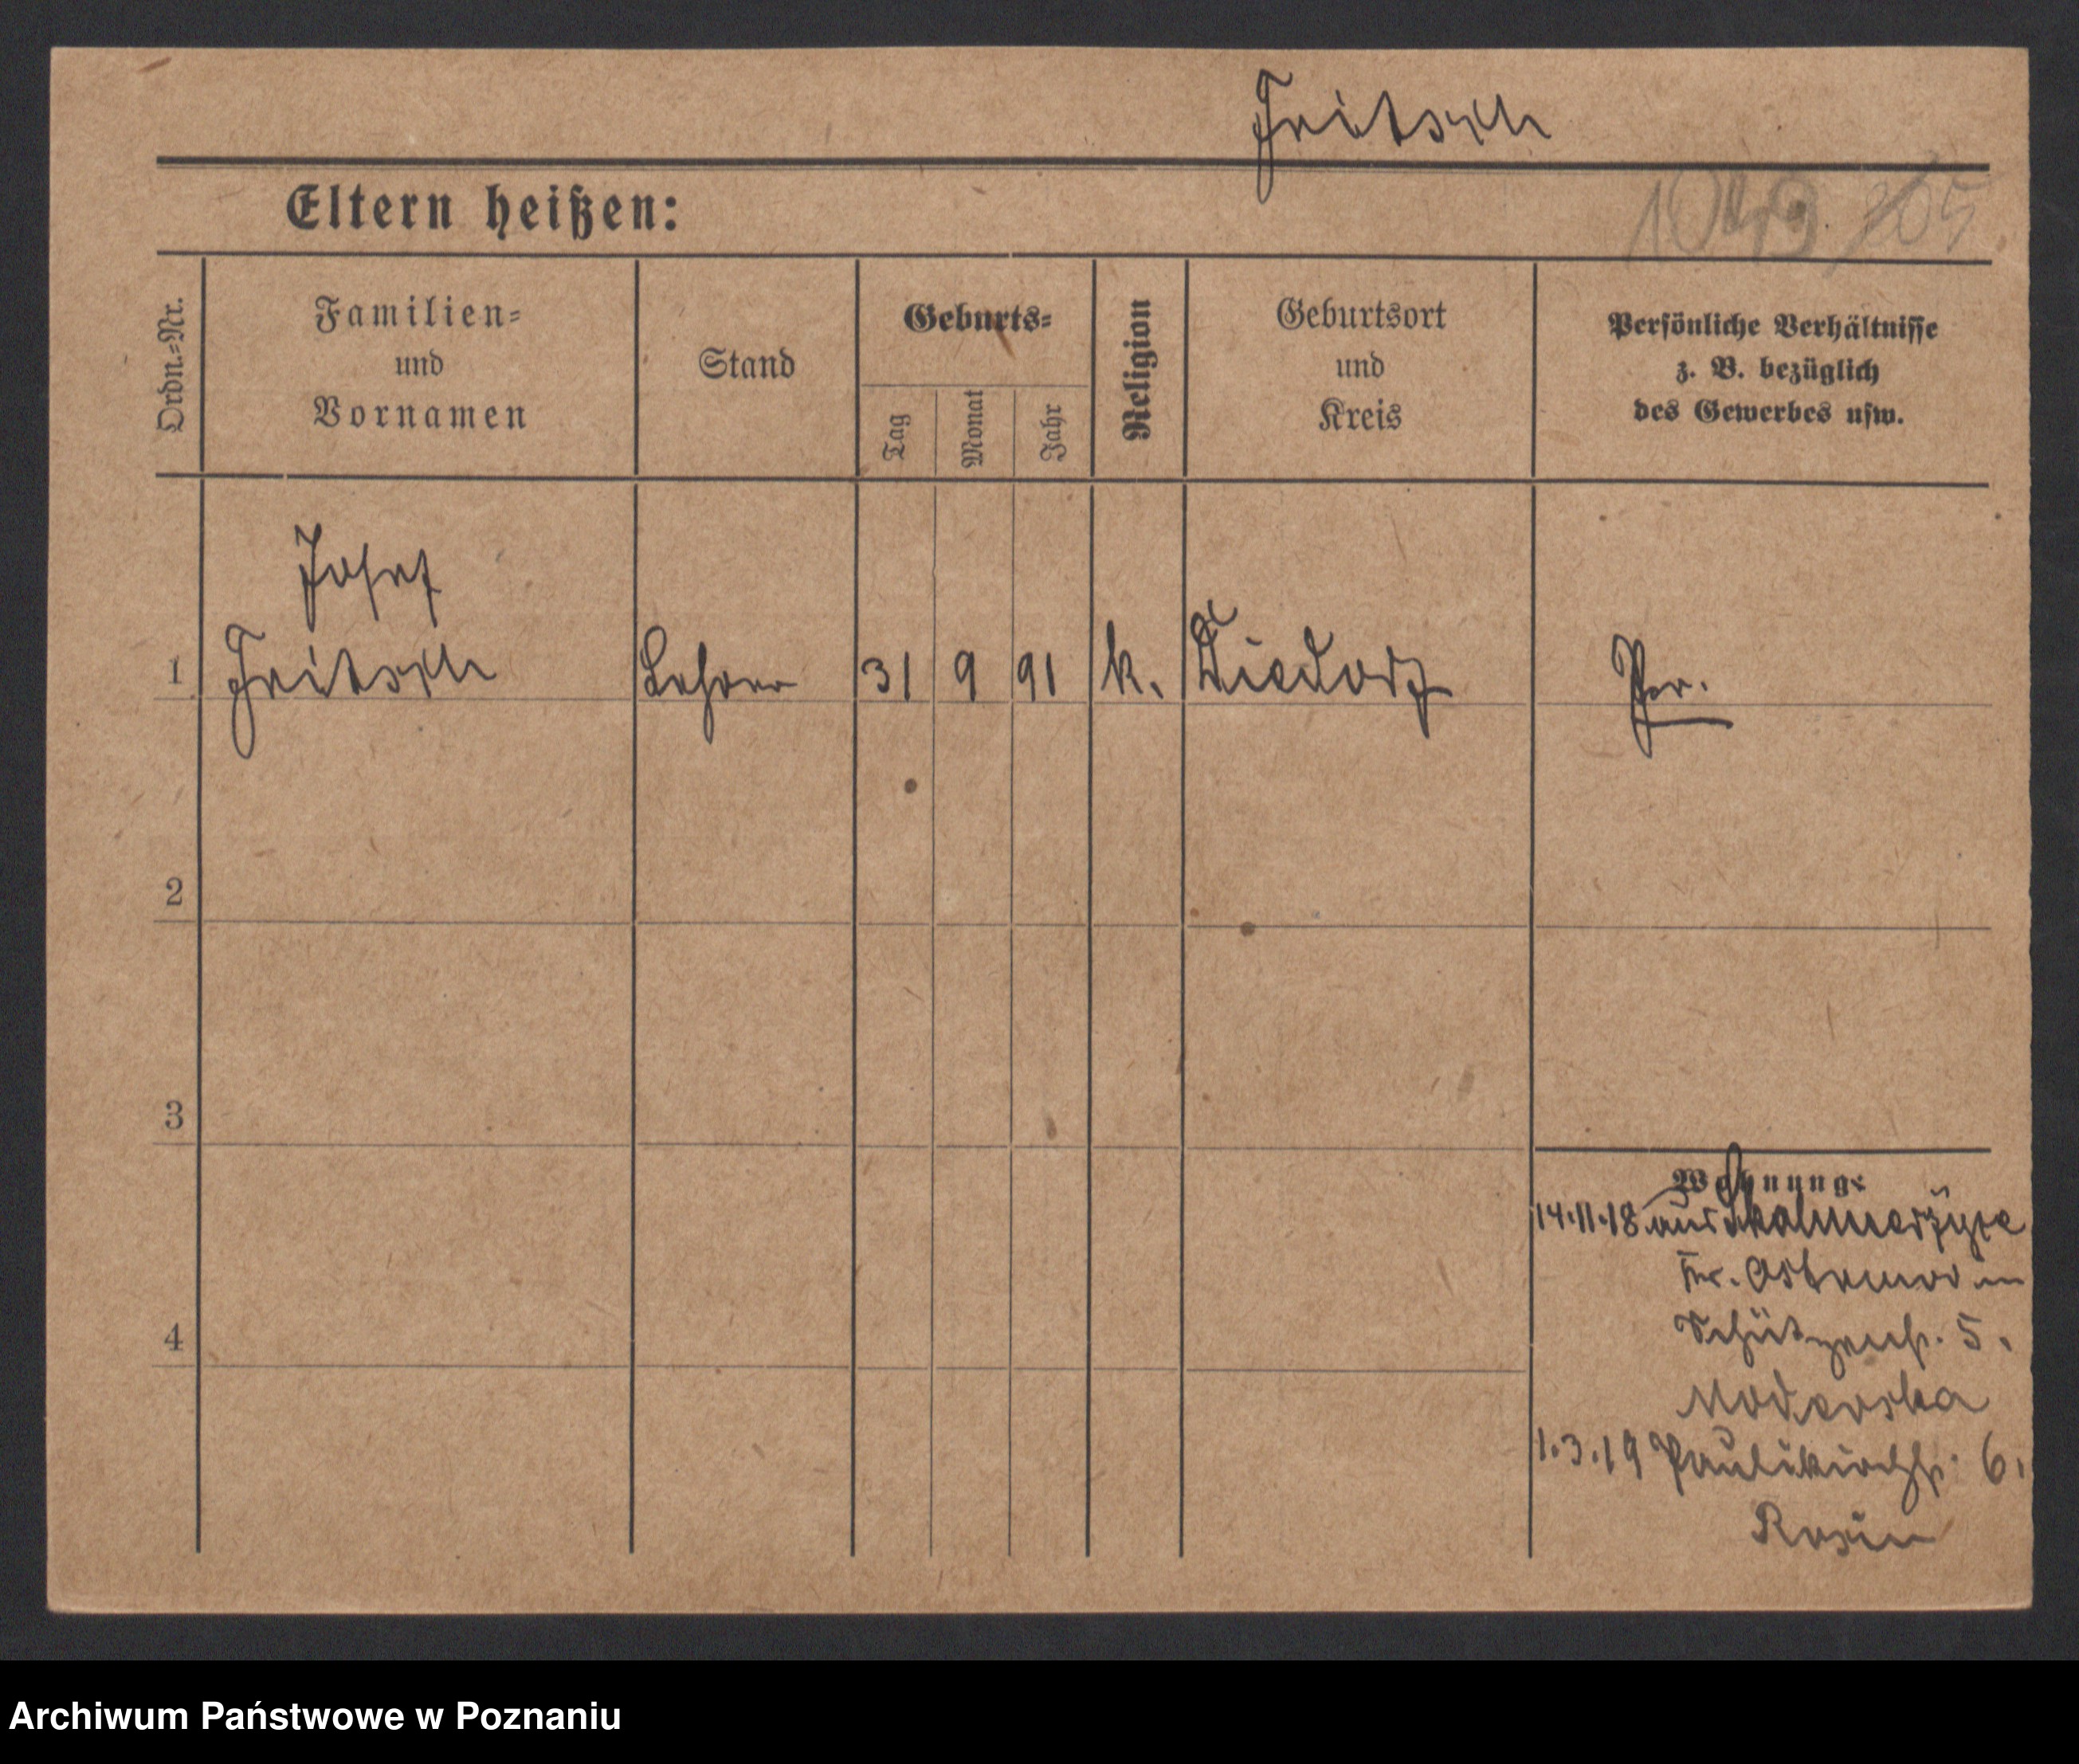 Fritsch
Eltern heißen:
1049
Ordn.=Nr.
Familien=
und
Vornamen
Stand
Geburts=
Tag
Monat
Jahr
Religion
Geburtsort
und
Kreis
Persönliche Verhältnisse
z. B. bezüglich
des Gewerbes usw.
Josef
1 Fritsch Lehrer 31 9 91 k. Pr.
2
3
4
Wohnung:
14.11.18 aus Skalmierzyce
Schützenstr. 5.
Moderska
1.3.19 Paulikirchstr. 6.
Rosin
Archiwum Państwowe w Poznaniu